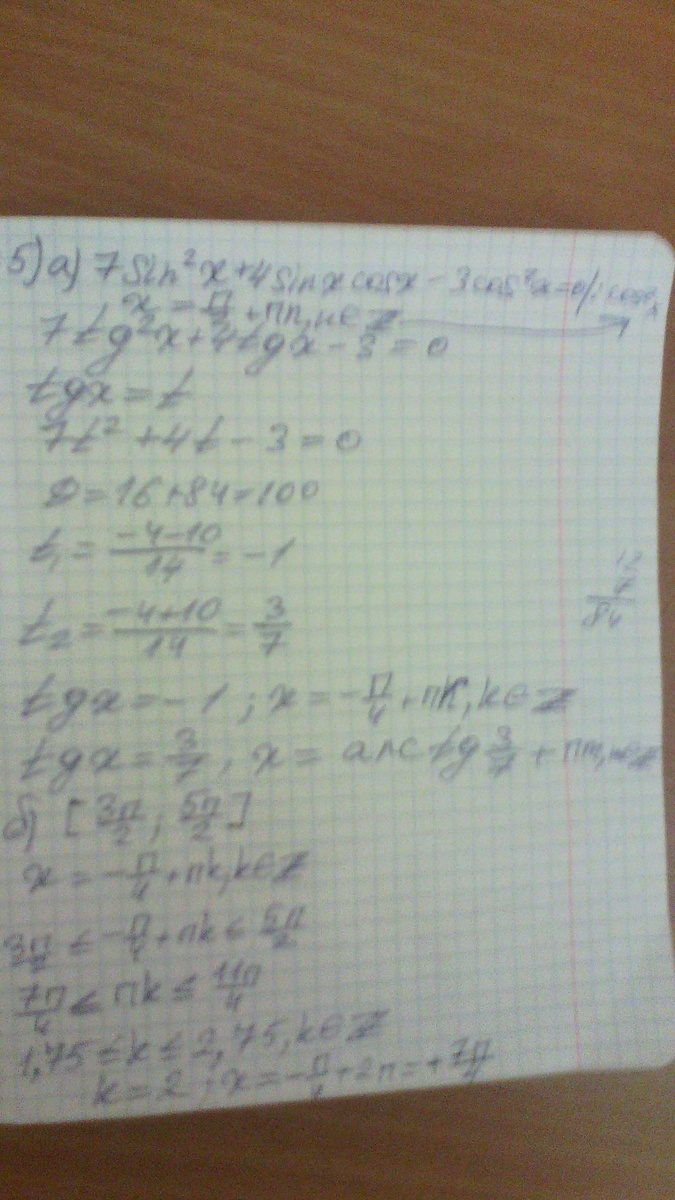 5) а) 7sin²x+4sinxcosx-3cos²x=0/:cos²x
x = π/2 + πn, n∈Z
7tg²x+4tgx-3=0
tgx=t
7t²+4t-3=0
D=16+84=100
t₁=(-4-10)/14=-1
t₂=(-4+10)/14=3/7
84
tgx=-1; x=-π/4+πk, k∈Z
tgx=3/7, x= arctg 3/7 + πm, m∈Z
б) [3π/2; 5π/2]
x=-π/4+πk, k∈Z
3π/2 ≤ -π/4+πk ≤ 5π/2
7π/4 ≤ πk ≤ 11π/4
1,75≤k≤2,75, k∈Z
k=2; x=-π/4+2π=+7π/4